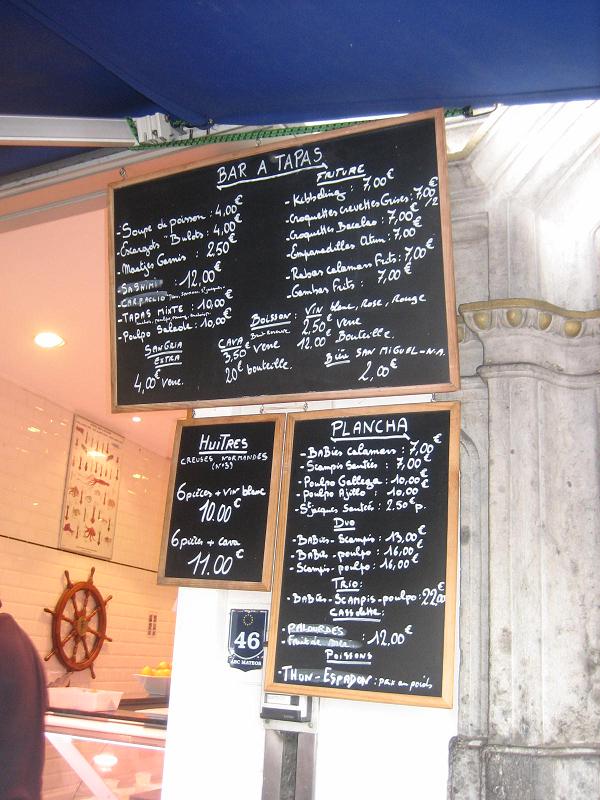 BAR A TAPAS
- Soupe de poisson : 4,00€
- Escargots "Bulots" : 4,00€
- Maatjes Garnis : 2.50€
- SASHIMI : 12.00€
- CARPACCIO
- TAPAS MIXTE : 10,00€
- Poulpo Salade : 10,00€
SANGRIA
EXTRA
4,00€ verre.
CAVA
3,50€ verre
20€ bouteille.
FRITURE
- Kibbeling : 7,00€
- Croquettes Crevettes Grises : 7,00€
- Croquettes Bacalao : 7,00€ 1/2
- Empanadillas Atun : 7,00€
- Rabas calamars Frits : 7,00€
- Gambas Frits : 7,00€
BOISSON : VIN blanc, Rose, Rouge
2,50€ verre
12.00€ Bouteille.
Bière SAN MIGUEL-N.A.
2,00€
HUITRES
CREUSES NORMANDES
(N°3)
6 pièces + vin blanc
10.00€
6 pièces + cava
11.00€
PLANCHA
- BABies Calamars : 7,00€
- Scampis Sautés : 7,00€
- Poulpo Gallega : 10,00€
- Poulpo Ajillo : 10,00
- St Jacques Sautées : 2.50€ p.
DUO
- BABies - Scampis : 13,00€
- BABies - poulpo : 16,00€
- Scampis - poulpo : 16,00€
TRIO :
- BABies - Scampis - poulpo : 22,00€
CASSolette :
- PALOURDES
- Fruit de mer : 12,00€
POISSONS
- THON - ESPADON : prix au poids
46
ABC MATEOS